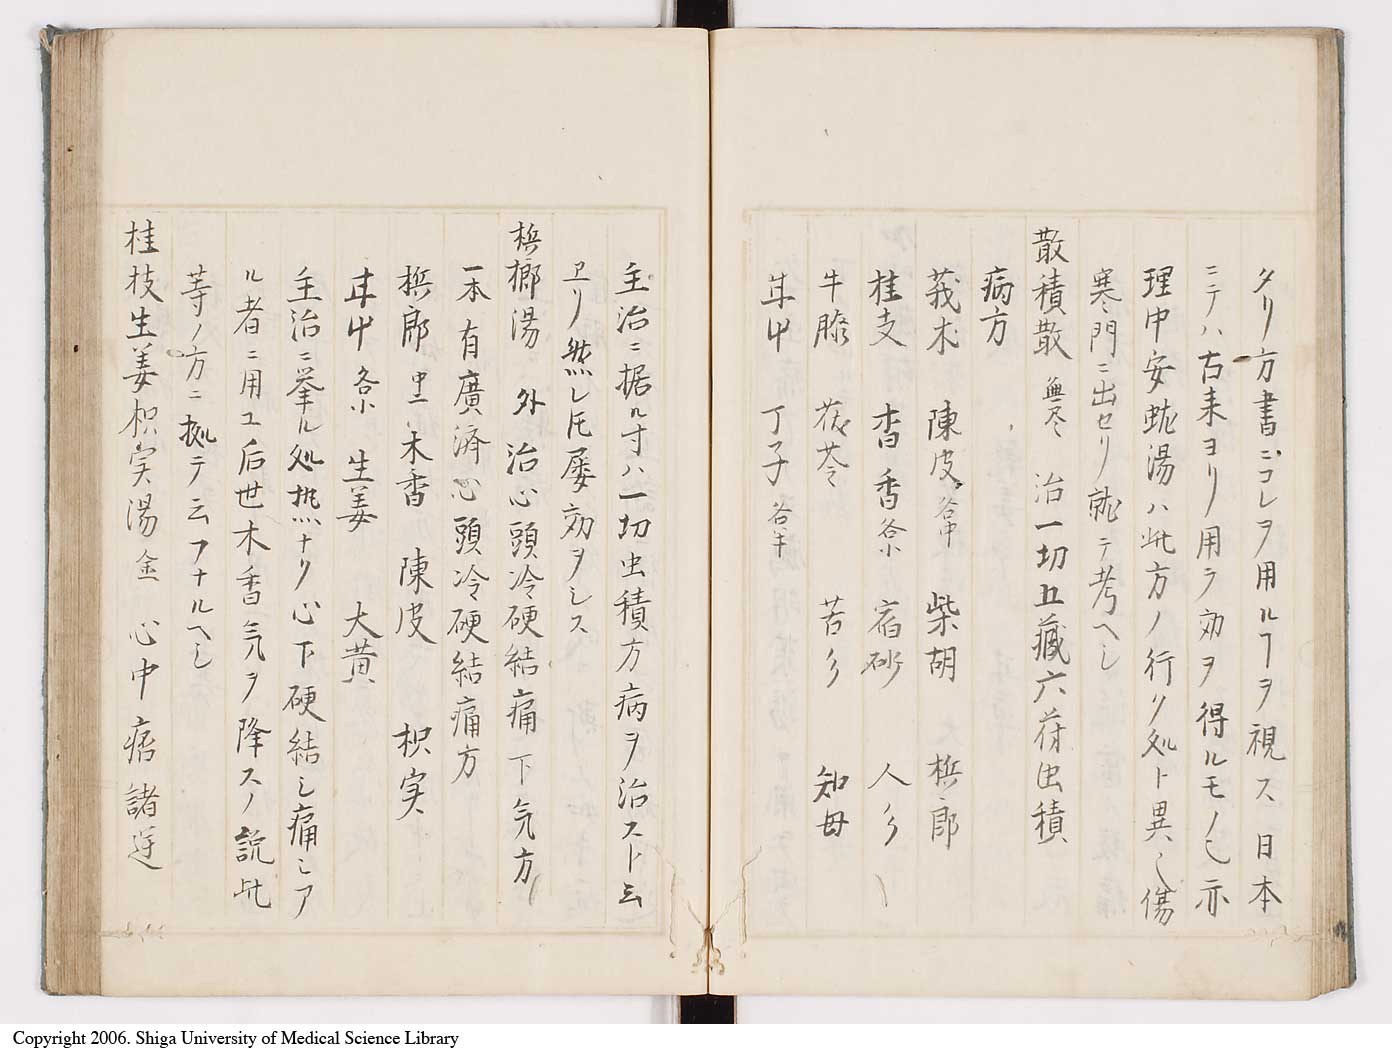 タリ方書ニコレヲ用ルヿヲ視ス日本
ニテハ古来ヨリ用ヲ効ヲ得ルモノ也亦
理中安蛇湯ハ此方ノ行リ処ト異也傷
寒門ニ出セリ就テ考ヘシ
散積散 無尽 治一切五臓六府虫積
病方
莪朮 陳皮各中 柴胡 梹郎
桂支 木香各小 宿砂 人参
牛膝 茯苓 苦参 知母
甘中 丁子各半
主治ニ据ル寸ハ一切虫積方病ヲ治スト云
ヱリ然レ𪜈屡効ヲミス
梹榔湯 外 治心頭冷硬結痛下気方
一本有廣済心頭冷硬結痛方
梹郎中 木香 陳皮 枳実
甘中各小 生姜 大黄
主治ニ挙ル処熱ナリ心下硬結シ痛ミア
ル者ニ用ユ后世木香気ヲ降スノ説此
等ノ方ニ拠テ云フナルヘシ
桂枝生姜枳実湯 金 心中痞諸逆
Copyright 2006. Shiga University of Medical Science Library